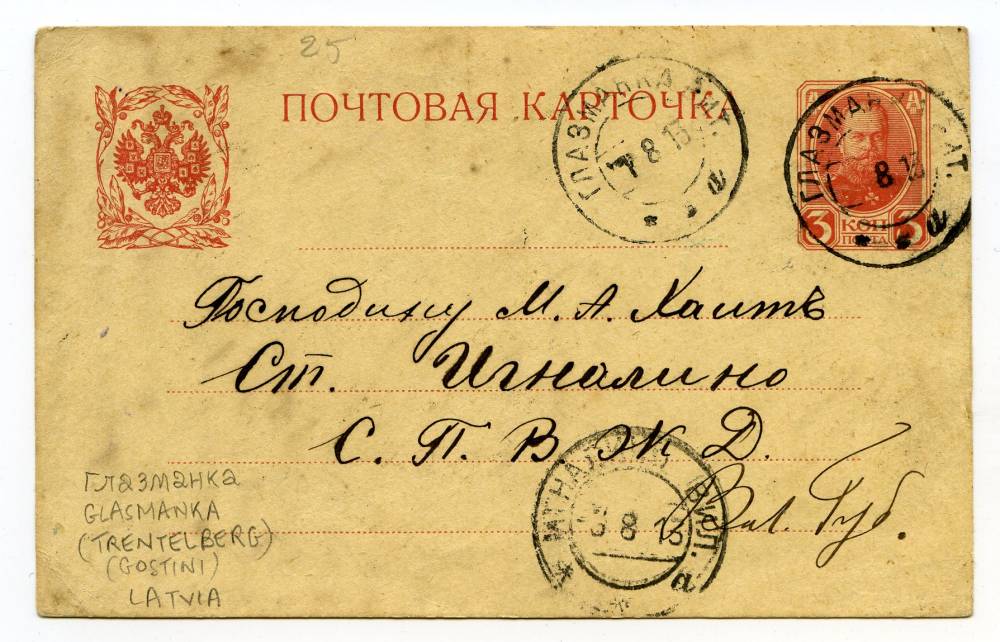 25
ПОЧТОВАЯ КАРТОЧКА
ГЛАЗМАНКА ВИТ.
7 8 13
а
ГЛАЗМАНКА ВИТ.
8 13
а
3 КОП 3
ПОЧТА
Господину М. А. Хаитъ
Ст. Игналино
С. П. В. Ж. Д.
Вил. Губ.
ИГНАЛИНО ВИЛ.
8 8 13
а
ГЛАЗМАНКА
GLASMANKA
(TRENTELBERG)
(GOSTINI)
LATVIA